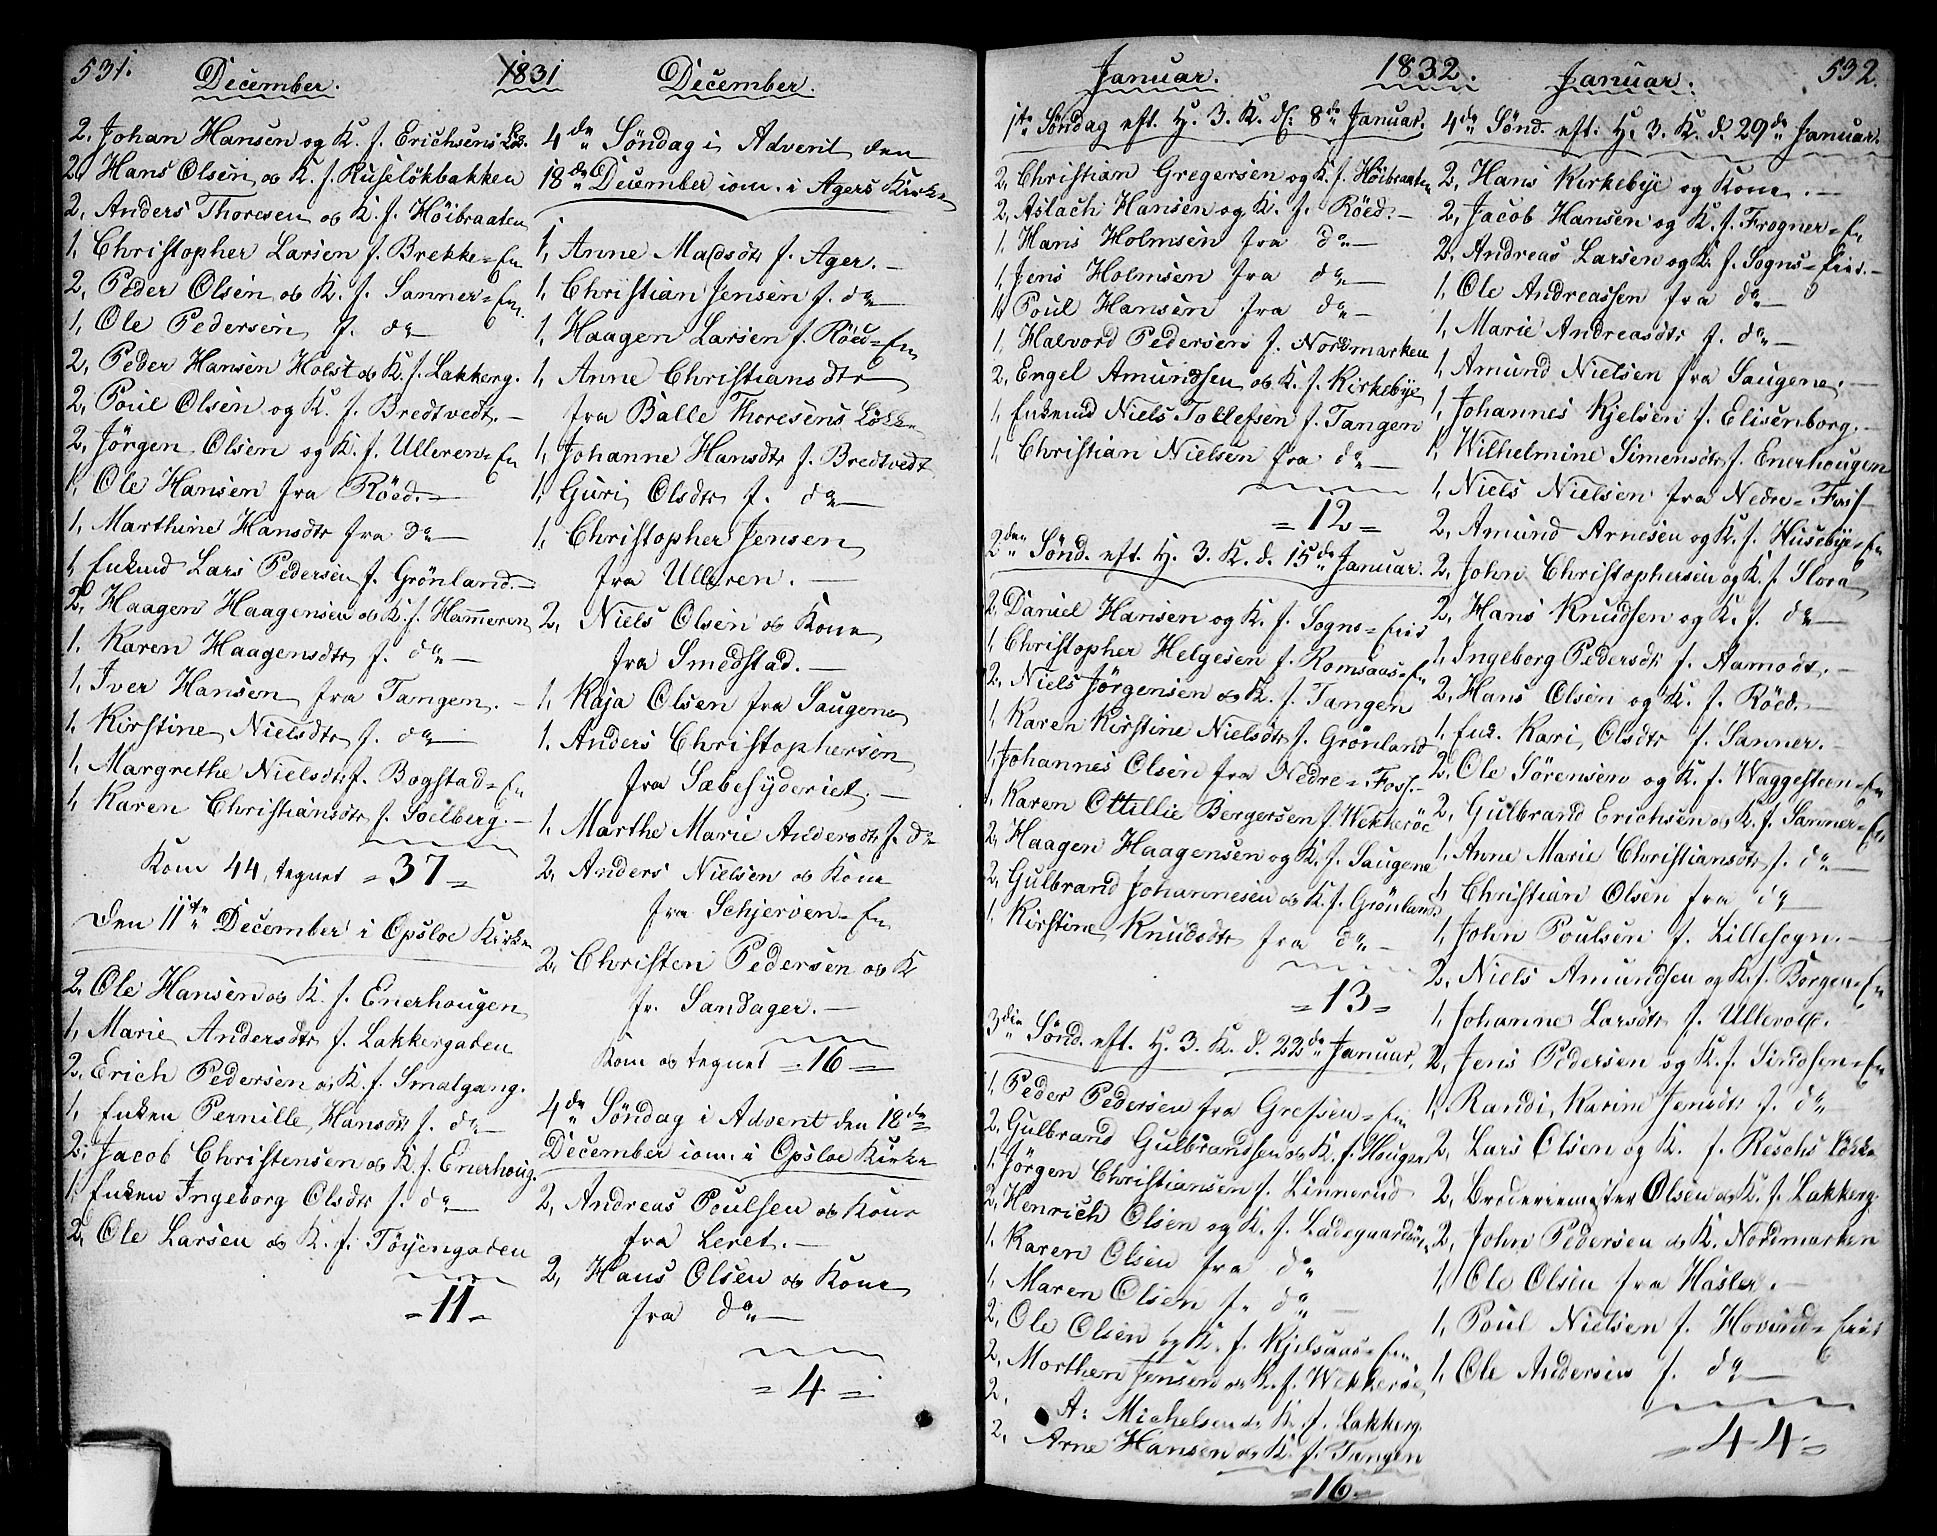 531.
December. 1831 December.
2, Johan Hansen og K. f. Erichsens Løk.
2, Hans Olsen og K. f. Ruseløkbakken
2, Anders Thoresen og K. f. Høibraaten
1, Christopher Larsen f. Brekke=En
2, Peder Olsen og K. f. Sanner=En.
1, Ole Pedersen f. do
2, Peder Hansen Holst og K. f. Lakkerg.
2, Poul Olsen og K. f. Bredtvedt.
2, Jörgen Olsen og K. f. Ulleren=En
1, Ole Hansen fra Röed.
1, Marthine Hansdtr fra do
1, Enkmd Lars Pedersen f. Grönland.
2, Haagen Haagensen og K. f. Hammeren
1, Karen Haagensdtr f. do
1, Iver Hansen fra Tangen.
1, Kirstine Nielsdtr f. do
1, Margrethe Nielsdtr f. Bogstad=En
1, Karen Christiansdtr f. Soelberg.
Kom 44, tegnet =37=
Den 11te December i Opsloe Kirke
2, Ole Hansen og K. f. Enerhougen
1, Marie Andersdtr f. Lakkergaden
2, Erich Pedersen og K. f. Smalgang.
1, Enken Pernille Hansdtr f. do
2, Jacob Christensen og K. f. Enerhoug.
1, Enken Ingeborg Olsdtr f. do
2, Ole Larsen og K. f. Töyengaden
=11=
4de Søndag i Advent den
18de December iom. i Agers Kirke
1, Anne Madsdtr f. Ager.
1, Christian Jensen f. do
1, Haagen Larsen f. Röed=En
1, Anne Christiansdtr
fra Balle Thoresens Løkke
1, Johanne Hansdtr f. Bredtvedt
1, Guri Olsdtr f. do
1, Christopher Jensen
fra Ulleren.
2, Niels Olsen og Kone
fra Smedstad.
1, Kaja Olsen fra Saugene
1, Anders Christophersen
fra Sæbesyderiet.
1, Marthe Marie Andersdtr f. do
2, Anders Nielsen og Kone
fra Schjerven=En
2, Christen Pedersen og K
fr. Sandager.
Kom og tegnet =16=
4de Søndag i Advent den 18de
December iom. i Opsloe Kirke
2, Andreas Poulsen og Kone
fra Leret.
2, Hans Olsen og Kone
fra do
=4=
Januar. 1832. Januar. 532.
1ste Søndag eft. H. 3. K. d: 8de Januar.
2, Christian Gregersen og K. f. Höibraaten
2, Aslach Hansen og K. f. Röed.
1, Hans Holmsen fra do
1, Jens Holmsen fra do
1, Poul Hansen fra do
1, Halvord Pedersen f. Nordmarken
2, Engel Amundsen og K. f. Kirkebye
1, Enkemd Niels Tollefsen f. Tangen
1, Christian Nielsen fra do
=12=
2den Sønd. eft. H. 3. K. d. 15de Januar.
2, Daniel Hansen og K. f. Sogns=Eiis
1, Christopher Helgesen f. Romsaas=En
2, Niels Jörgensen og K. f. Tangen
1, Karen Kirstine Nielsdtr f. Grönland
1, Johannes Olsen fra Nedre=Foss.
1, Karen Ottillie Bergersen f. Wekkeröe
2, Haagen Haagensen og K. f. Saugene
2, Gulbrand Johannesen og K. f. Grönland
1, Kirstine Knudsdtr fra do
=13=
3die Sønd. eft. H. 3. K. d. 22de Januar.
1, Peder Pedersen fra Gressen=En
2, Gulbrand Gulbrandsen og K. f. Hougen
1, Jörgen Christiansen f. Linnerud
2, Henrich Olsen og K. f. Ladegaardsöen
1, Karen Olsen fra do
1, Maren Olsen f. do
2, Ole Olsen og K. f. Kjelsaas=En
2, Morthen Jensen og K. f. Wekkeröe,
2, A: Michelsen og K. f. Lakkerg.
2, Arne Hansen og K. f. Tangen
=16=
4de Sønd. eft. H. 3. K. d. 29de Januar.
2, Hans Kirkebye og Kone.
2, Jacob Hansen og K. f. Frogner=En
2, Andreas Larsen og K. f. Sogns=Eiis.
1, Ole Andreassen fra do
1, Marie Andreasdtr f. do
1, Amund Nielsen fra Saugene.
1, Johannes Kjelsen f. Elisenborg.
1, Wilhelmine Simensdtr f. Enerhougen
1, Niels Nielsen fra Nedre=Foss
2, Amund Arnesen og K. f. Husebye=En
2, John Christophersen og K. f. Slora
2, Hans Knudsen og K. f. do
1, Ingeborg Pedersdtr f. Aamodt.
2, Hans Olsen og K. f. Röed.
1, Enk. Kari Olsdtr f. Sanner.
2, Ole Sörensen og K. f. Waggesteen=En
2, Gulbrand Erichsen og K. f. Sanner=En
1, Anne Marie Christiansdtr f. do
1, Christian Olsen fra do
1, John Poulsen f. Lillesogn.
2, Niels Amundsen og K. f. Borgen=En
1, Johanne Larsdtr f. Ullevold.
2, Jens Pedersen og K. f. Sindsen=En
1, Randi Karine Jensdtr f. do
2, Lars Olsen og K. f. Reschs Løkke
2, Broderiemester Olsen og K. f. Lakkerg
2, John Pedersen og K. Nordmarken
1, Ole Olsen fra Hasler.
1, Poul Nielsen f. Hovind=Eiis
1, Ole Andersen f. do
=44=